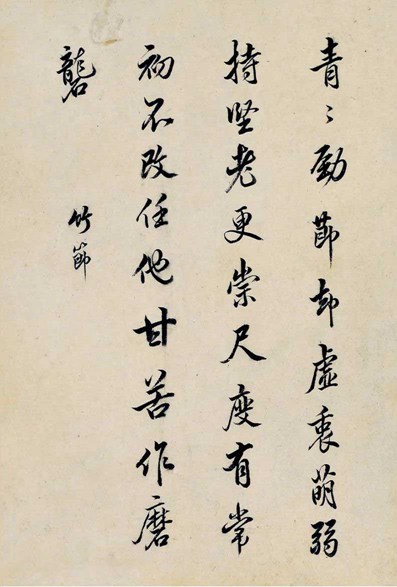 青〻勁節却虛衷萌弱
持堅老更崇尺度有常
初不改任他甘苦作磨
礱　竹節